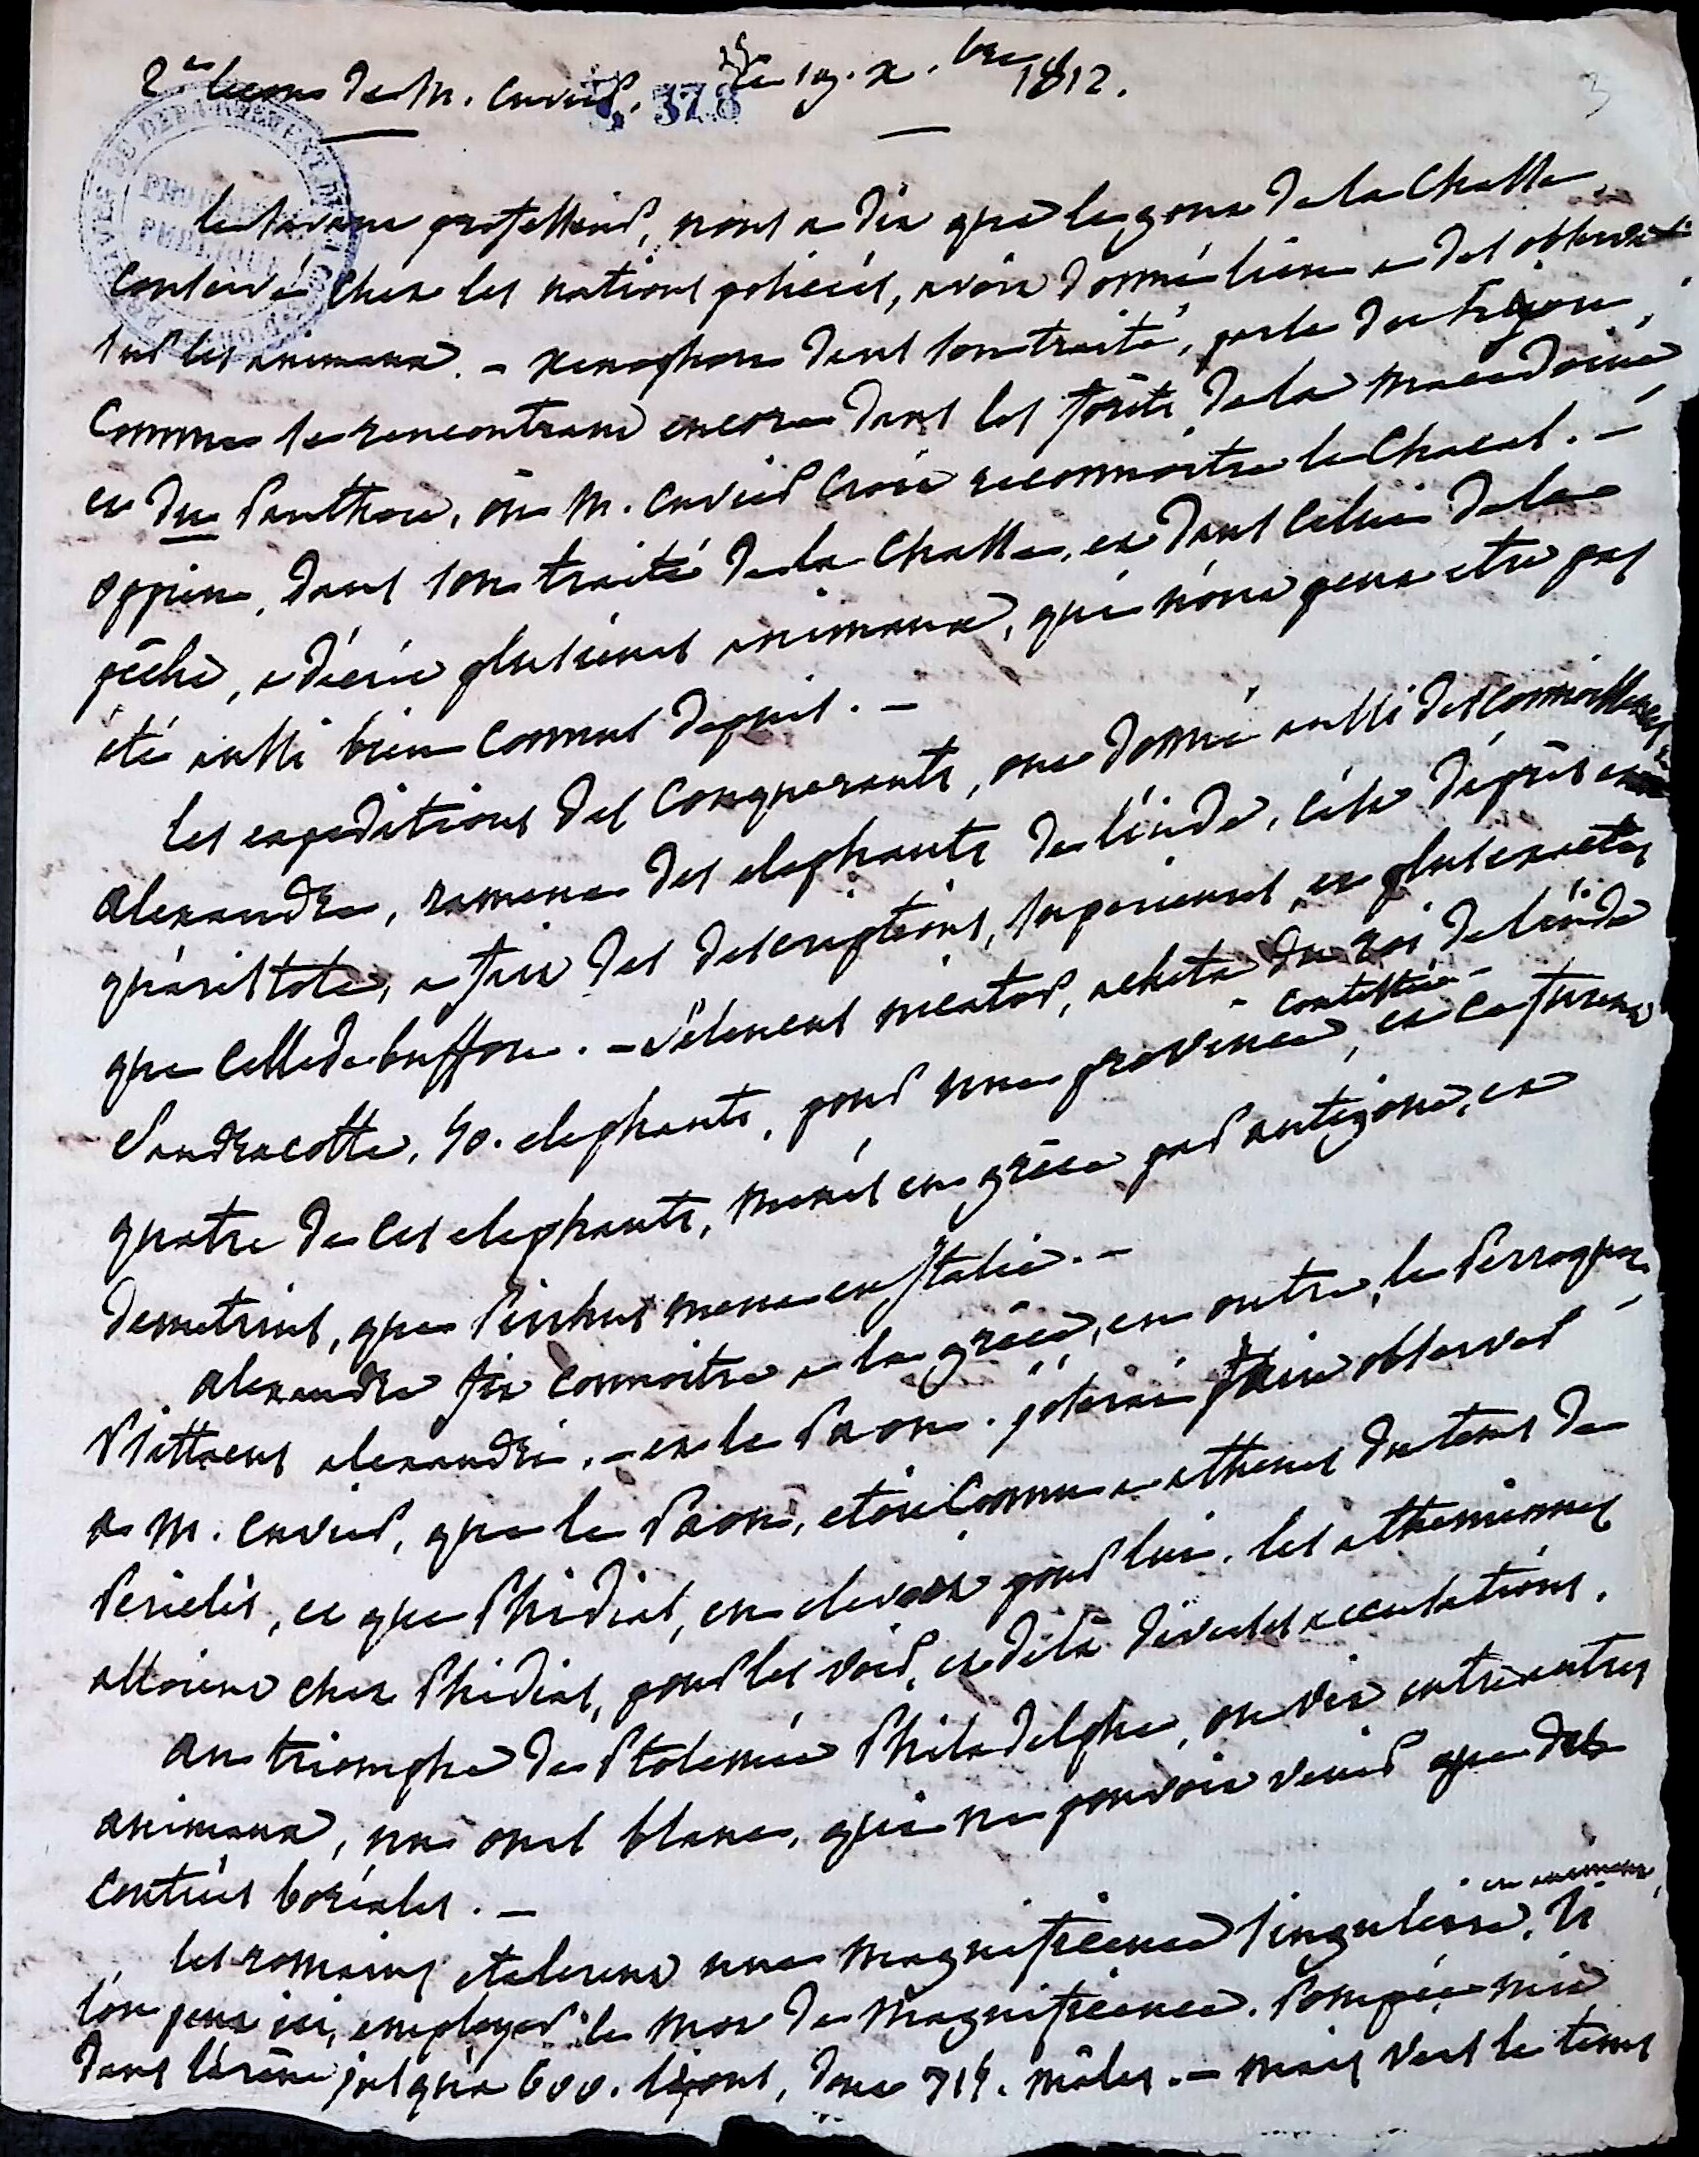 2e leçon de M. Cuvier. le 19. Xbre 1812.
J. 378
3
le savant professeur, nous a dit que le gout de la chasse
conservé chez les nations policées, avoit donné lieu a des observat.
sur les animaux. – xenophon dans son traité, parle du lion,
comme se rencontrant encore dans les forêts de la macedoine
et du Panthere, où M. Cuvier croit reconnoitre le chacal. –
oppien, dans son traité de la chasse, et dans celui de la
pêche, a décrit plusieurs animaux, qui n'ont peut etre pas
été aussi bien connus depuis. –
les expeditions des conquerants, ont donné aussi des connoissances
alexandre, ramena des elephants de l'inde, c'est d'après eux
qu'aristote, a fait des descriptions, superieures, et plus exactes
que celles de buffon. – Seleucus nicator, acheta du roi de l'inde
Sandracotte, 40. elephants, pour une province contestée, et ce furent
quatre de ces elephants, menés en grèce par antigone, et
demetrius, que Pirrhus mena en italie. –
alexandre fit connoitre a la grèce, en outre, le Perroquet
Psittacus alexandri. – et le Paon. j'oserai faire observer
a M. Cuvier, que le Paon, etoit connu a athenes du tems de
Periclès, et que Phidias, en elevoit pour lui. les atheniennes
alloient chez Phidias, pour les voir, et delà diverses accusations.
au triomphe de Ptolemée Philadelphe, on vit entr'autres
animaux, un ours blanc, qui ne pouvoit venir que des
contrées boréales. –
les romains etalerent une magnificence singuliere, en animaux, si
l'on peut ici, employer le mot de magnificence. Pompée mit
dans l'arène jusqu'à 600. lions, dont 315. mâles. – mais vers le tems